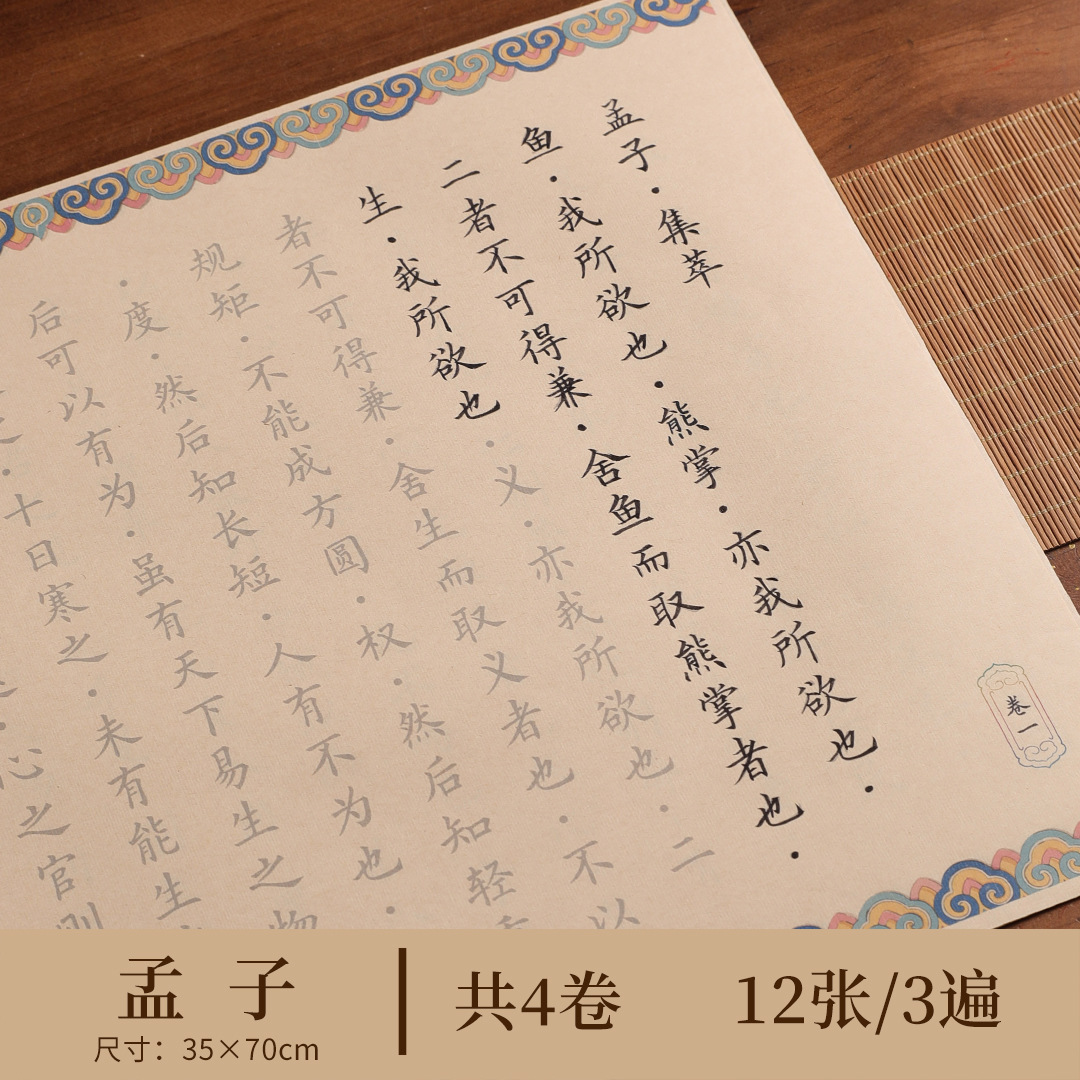 孟子·集萃
鱼·我所欲也·熊掌·亦我所欲也·
二者不可得兼·舍鱼而取熊掌者也·
生·我所欲也·义·亦我所欲也·二
者不可得兼·舍生而取义者也·不以
规矩·不能成方圆·权·然后知轻
·度·然后知长短·人有不为也·
后可以有为·虽有天下易生之物
·十日寒之·未有能生
心之官则
卷一
孟子
尺寸：35×70cm
共4卷
12张/3遍